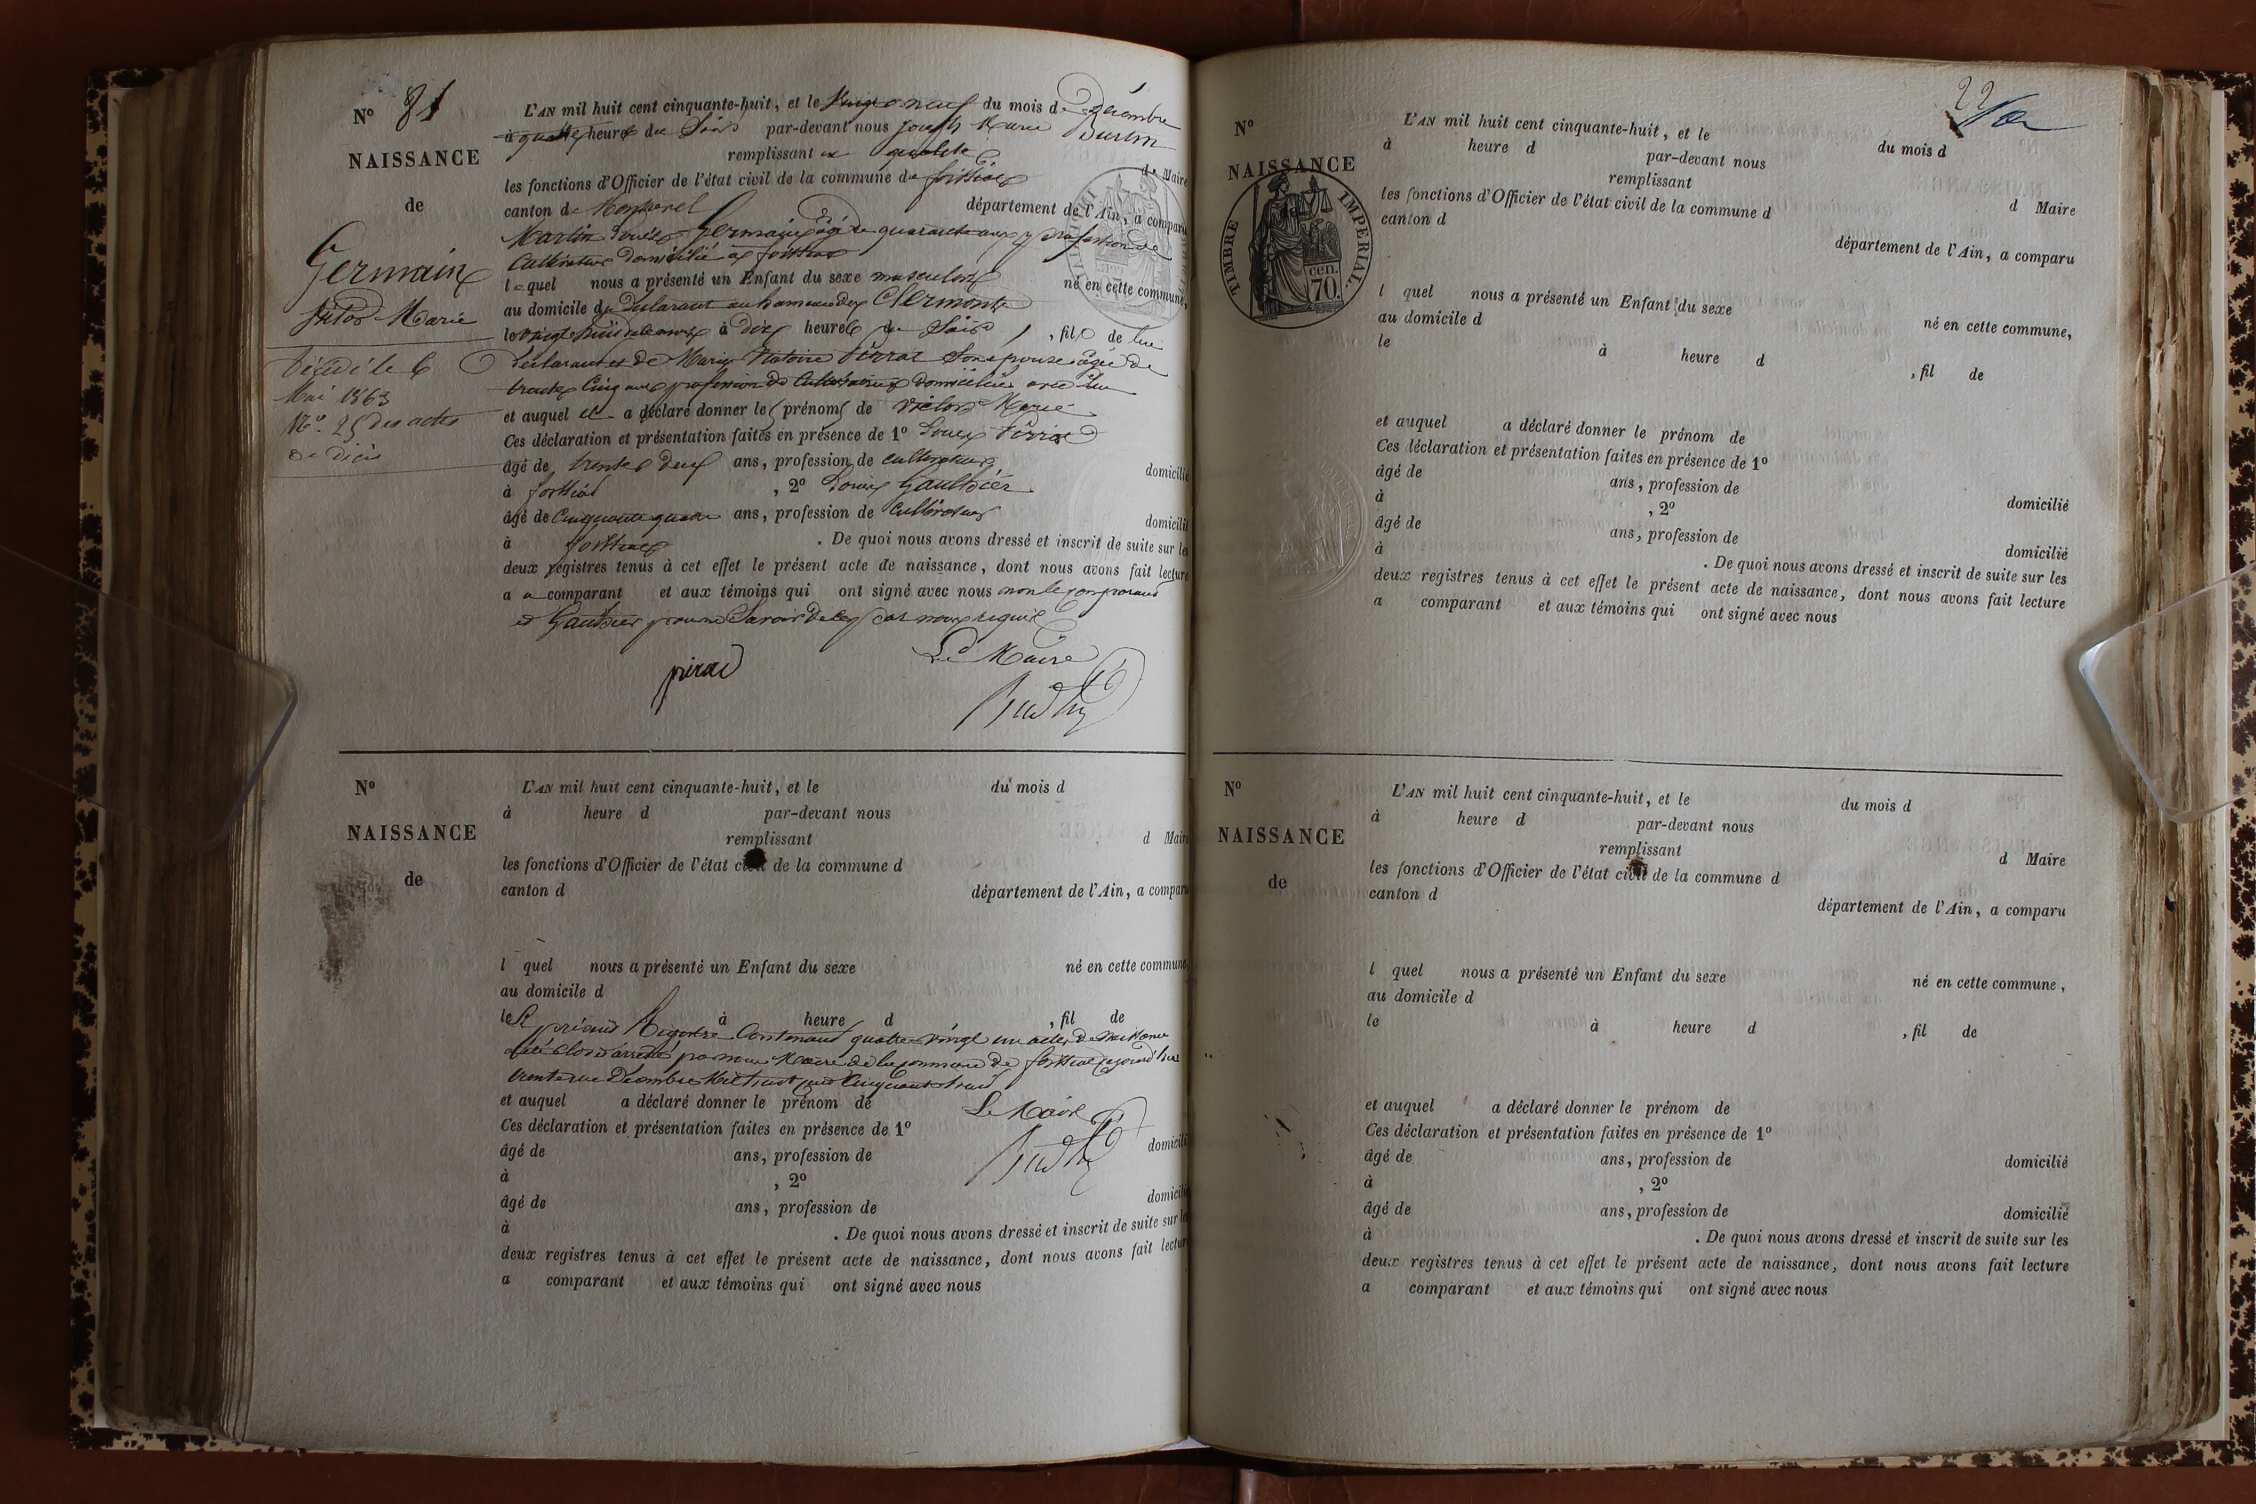 N° 81
NAISSANCE
de
Germain
Victor Marie
Décédé le 6
Mai 1863
N° 25 des actes
de Décès
L'AN mil huit cent cinquante-huit, et le Vingt neuf du mois de Décembre
à quatre heures du Soir par-devant nous Joseph Marie
remplissant en qualité de Maire
les fonctions d'Officier de l'état civil de la commune de
canton de département de l'Ain, a comparu
Martin Louis Germain âgé de quarante ans profession de
Cultivateur domicilié à
lequel nous a présenté un Enfant du sexe masculin né en cette commune,
au domicile du Déclarant au hameau de Clermont
le vingt huit à dix heures du Soir, fils de lui
Déclarant et de Marie Pirrat Son épouse âgée de
trente Cinq ans profession de domiciliée avec lui
et auquel il a déclaré donner les prénoms de Victor Marie
Ces déclaration et présentation faites en présence de 1° Louis
âgé de trente deux ans, profession de cultivateur domicilié
à , 2° Louis Gauthier
âgé de Cinquante quatre ans, profession de Cultivateur domicilié
à . De quoi nous avons dressé et inscrit de suite sur les
deux registres tenus à cet effet le présent acte de naissance, dont nous avons fait lecture
au comparant et aux témoins qui ont signé avec nous non le comparant
et Gauthier pour ne Savoir de ce par nous requis
pirat
Le Maire
N°
NAISSANCE
de
L'AN mil huit cent cinquante-huit, et le du mois d
à heure d par-devant nous
remplissant d Maire
les fonctions d'Officier de l'état civil de la commune d
canton d département de l'Ain, a comparu
l quel nous a présenté un Enfant du sexe né en cette commune
au domicile d
le à heure d , fil de
Le présent Registre Contenant quatre vingt un actes de Naissance
a été Clos et arrêté par nous Maire de la commune de aujourd'hui
trente un Décembre Mil huit cent Cinquante huit
et auquel a déclaré donner le prénom de
Le Maire
Ces déclaration et présentation faites en présence de 1°
âgé de ans, profession de domicilié
à , 2°
âgé de ans, profession de domicilié
à . De quoi nous avons dressé et inscrit de suite sur les
deux registres tenus à cet effet le présent acte de naissance, dont nous avons fait lecture
a comparant et aux témoins qui ont signé avec nous
22
N°
NAISSANCE
TIMBRE IMPERIAL.
70. cen.
L'AN mil huit cent cinquante-huit, et le du mois d
à heure d par-devant nous
remplissant d Maire
les fonctions d'Officier de l'état civil de la commune d
canton d département de l'Ain, a comparu
l quel nous a présenté un Enfant du sexe né en cette commune,
au domicile d
le à heure d , fil de
et auquel a déclaré donner le prénom de
Ces déclaration et présentation faites en présence de 1°
âgé de ans, profession de domicilié
à , 2°
âgé de ans, profession de domicilié
à . De quoi nous avons dressé et inscrit de suite sur les
deux registres tenus à cet effet le présent acte de naissance, dont nous avons fait lecture
a comparant et aux témoins qui ont signé avec nous
N°
NAISSANCE
de
L'AN mil huit cent cinquante-huit, et le du mois d
à heure d par-devant nous
remplissant d Maire
les fonctions d'Officier de l'état civil de la commune d
canton d département de l'Ain, a comparu
l quel nous a présenté un Enfant du sexe né en cette commune,
au domicile d
le à heure d , fil de
et auquel a déclaré donner le prénom de
Ces déclaration et présentation faites en présence de 1°
âgé de ans, profession de domicilié
à , 2°
âgé de ans, profession de domicilié
à . De quoi nous avons dressé et inscrit de suite sur les
deux registres tenus à cet effet le présent acte de naissance, dont nous avons fait lecture
a comparant et aux témoins qui ont signé avec nous